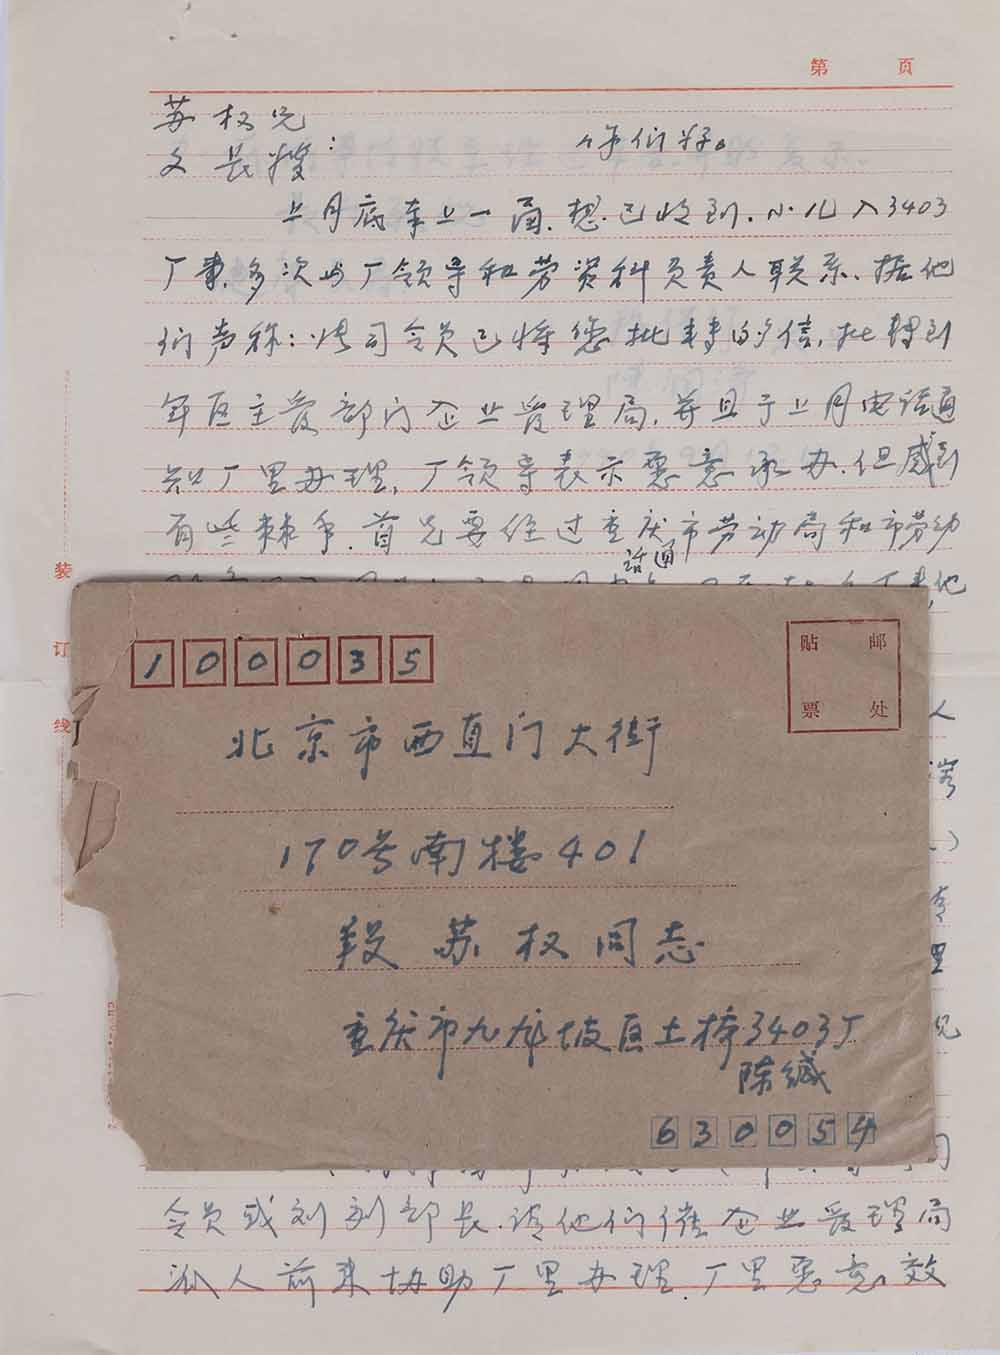 第 页
苏权兄
文长嫂： 你们好。
上月底奉上一函，想已收到，小儿入3403
厂事，多次与厂领导和劳资科负责人联系，据他
们声称：洪司令员已将您批转的信，批转到
军区主管部门企业管理局，并且于上月电话通
知厂里办理，厂领导表示愿意承办，但感到
有些棘手，首先要经过重庆市劳动局和市劳动
话通
他
装
订
线
人
里
况
100035
贴 邮
票 处
北京市西直门大街
170号南楼401
段苏权同志
重庆市九龙坡区土桥3403厂
陈缄
630054
令员或刘副部长，请他们催企业管理局
派人前来协助厂里办理，厂里愿意效